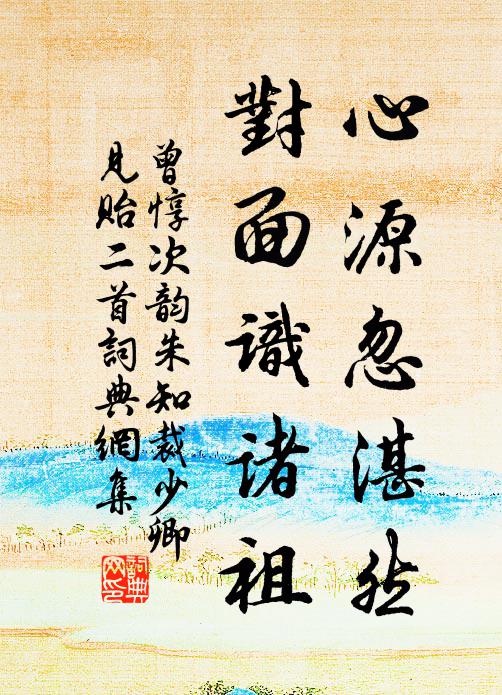 心源忽湛然
對面識诸祖
曾惇次韵朱知裁少卿
見贻二首詞典網集
詞典網印